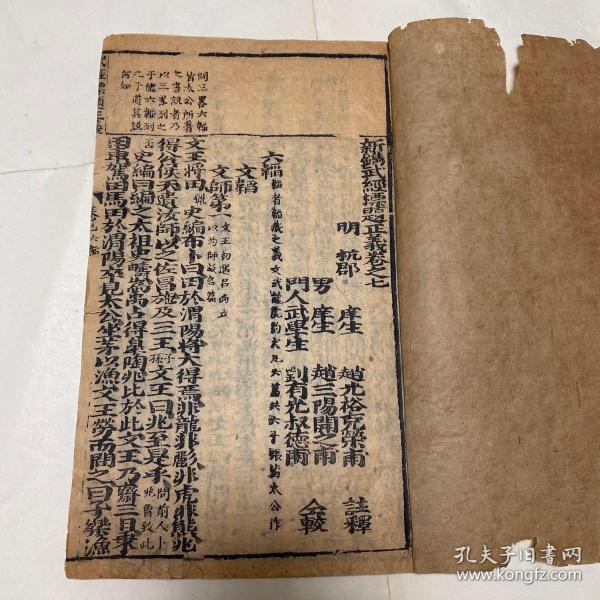 新鐫武經標題正義卷之七
明 杭郡 庠生 趙光裕克榮甫 註釋
男 庠生 趙三陽開之甫
門人武學生 劉有光叔德甫 仝較
六韜
文韜
文師第一
文王將田史編布卜曰田於渭陽將大得焉非龍非彲非虎非熊兆
得公侯天遺汝師以之佐昌施及三王文王曰兆至是乎
史編曰編之太祖史疇為禹占得皐陶兆比於此文王乃齋三日乘
田車駕田馬田於渭陽卒見太公坐茅以漁文王勞而問之曰子樂漁
問三畧六韜
皆太公所著
之書説者乃
以三畧列之
于後六韜列
之于首其説
何如
孔夫子旧书网
www.kongfz.com